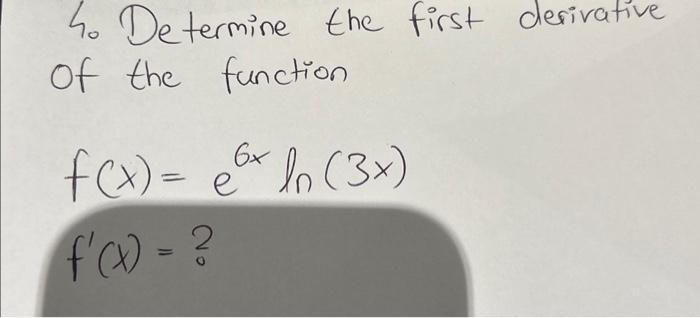 4. Determine the first derivative
Of the function
f(x) = e^{6x} ln(3x)
f'(x) = ?